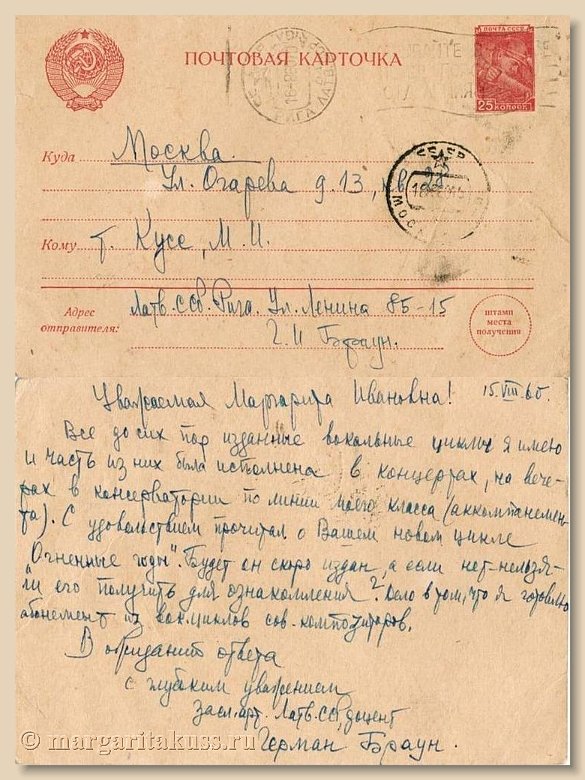 ПОЧТОВАЯ КАРТОЧКА
ПОЧТА СССР
25 КОПЕЕК
Куда Москва.
Ул. Огарева д. 13, кв
СССР
МОСКВА
Кому т. Кусс, М. И.
Адрес отправителя: Латв. ССР. Рига. Ул. Ленина 85-15
Г. И Браун.
штамп
места
получения
Уважаемая Маргарита Ивановна! 15.VIII.60.
Все до сих пор изданные вокальные циклы я имею
и часть из них была исполнена в концертах, на вече-
рах в консерватории по линии моего класса (аккомпанемен-
та). С удовольствием прочитал о Вашем новом цикле
"Огненные годы". Будет он скоро издан, а если нет-нельзя-
ли его получить для ознакомления? Дело в том, что я готовлю
абонемент из вок. циклов сов. композиторов.
В ожидании ответа
с глубоким уважением
Засл. арт. Латв. ССР, доцент
Герман Браун.
© margaritakuss.ru